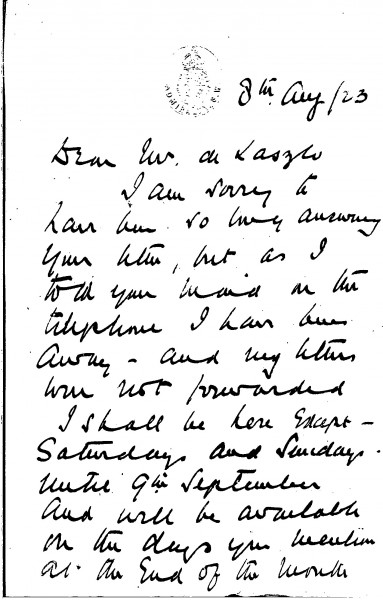 ADMIRALTY S.W
8th Aug/23
Dear Mr. de Laszlo
I am sorry to
have been so long answering
your letter, but as I
told your maid on the
telephone I have been
away - and my letters
were not forwarded
I shall be here except -
Saturdays and Sundays.
until 9th September
and will be available
on the days you mention
at the end of the month